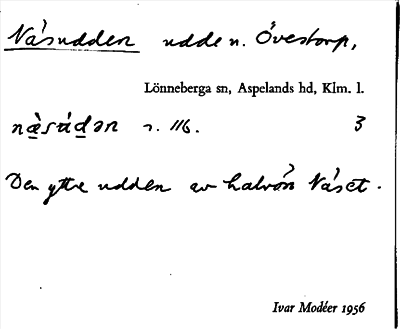 Näsudden udde n. Övestorp,
Lönneberga sn, Aspelands hd, Klm. l.
næ̀sùdən r. 116. 3
Den yttre udden av halvön Näset.
Ivar Modéer 1956